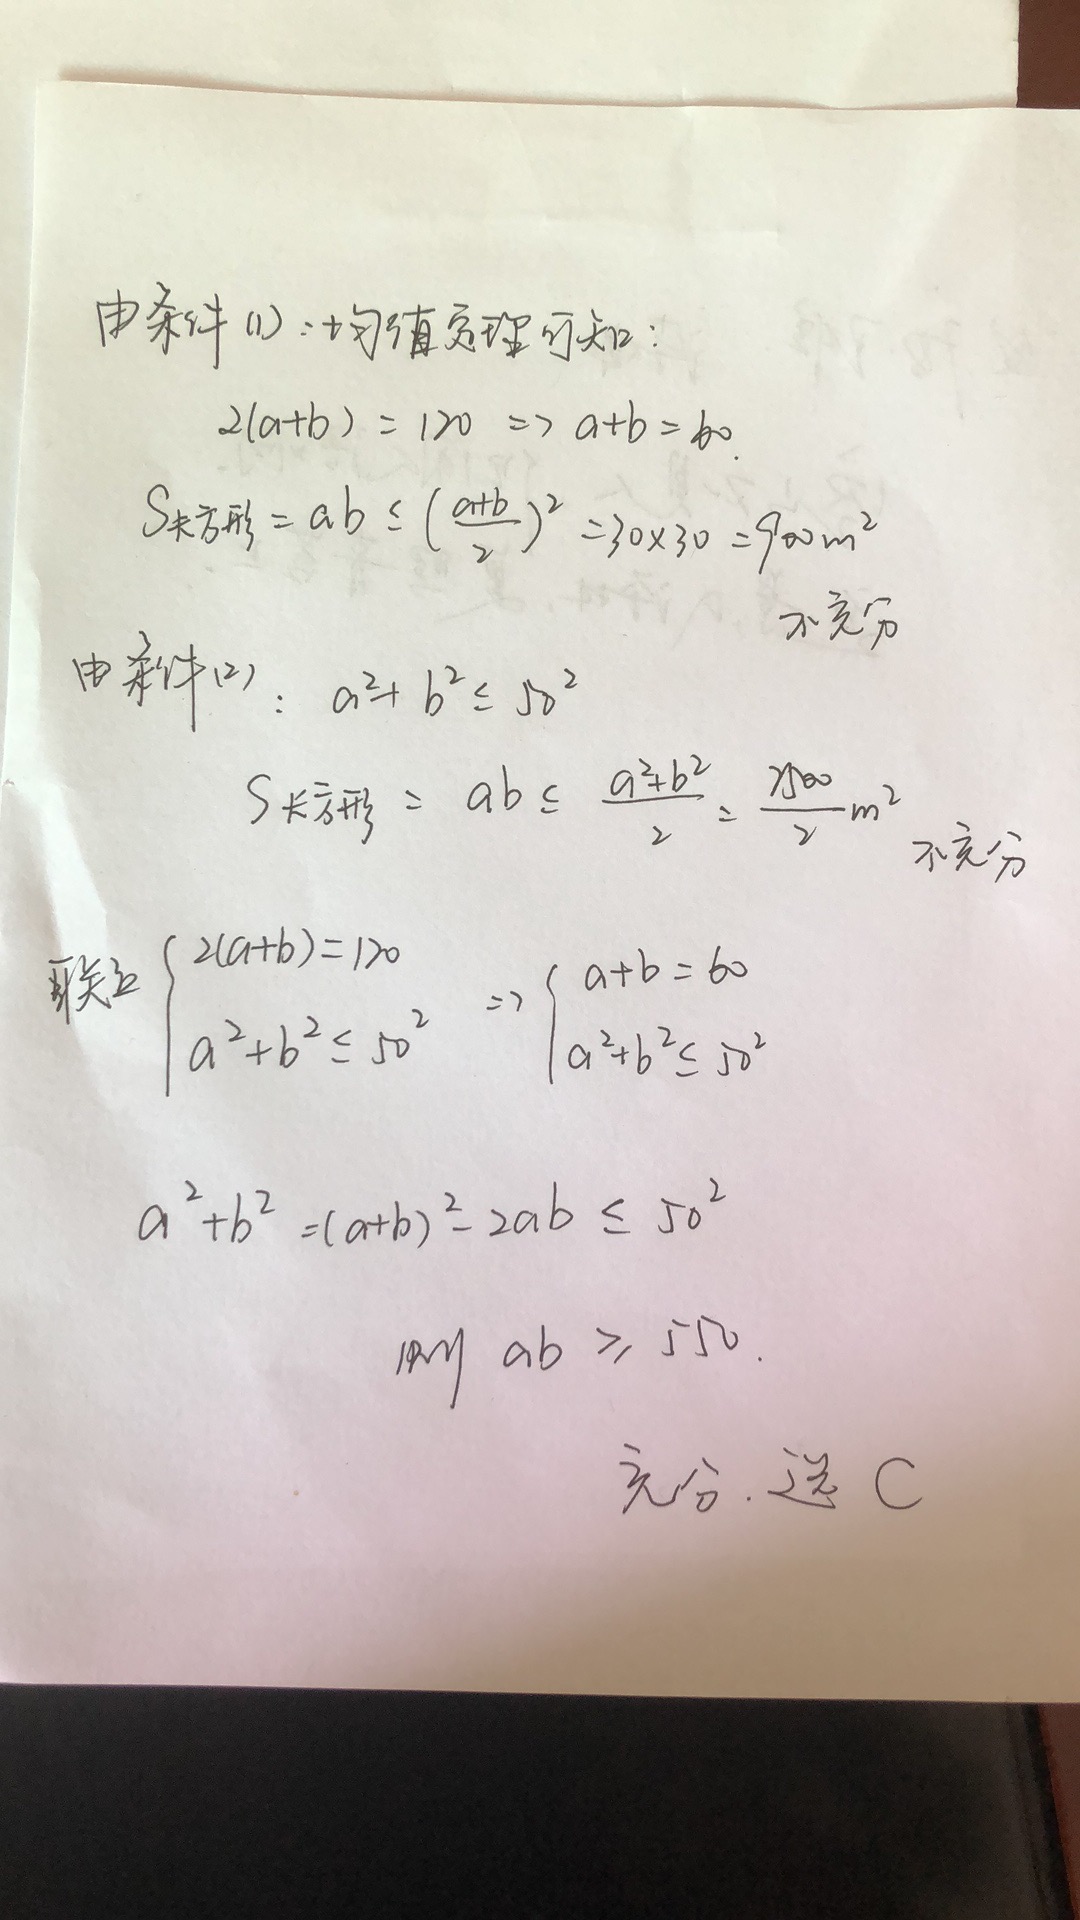 由条件(1):均值定理可知:
2(a+b)=120 => a+b=60.
S长方形=ab≤(a+b/2)²=30×30=900m²
不充分
由条件(2): a²+b²≤50²
S长方形=ab≤a²+b²/2=2500/2m²
不充分
联立{2(a+b)=120 => {a+b=60
a²+b²≤50² a²+b²≤50²
a²+b²=(a+b)²-2ab≤50²
则ab≥550.
充分.选C